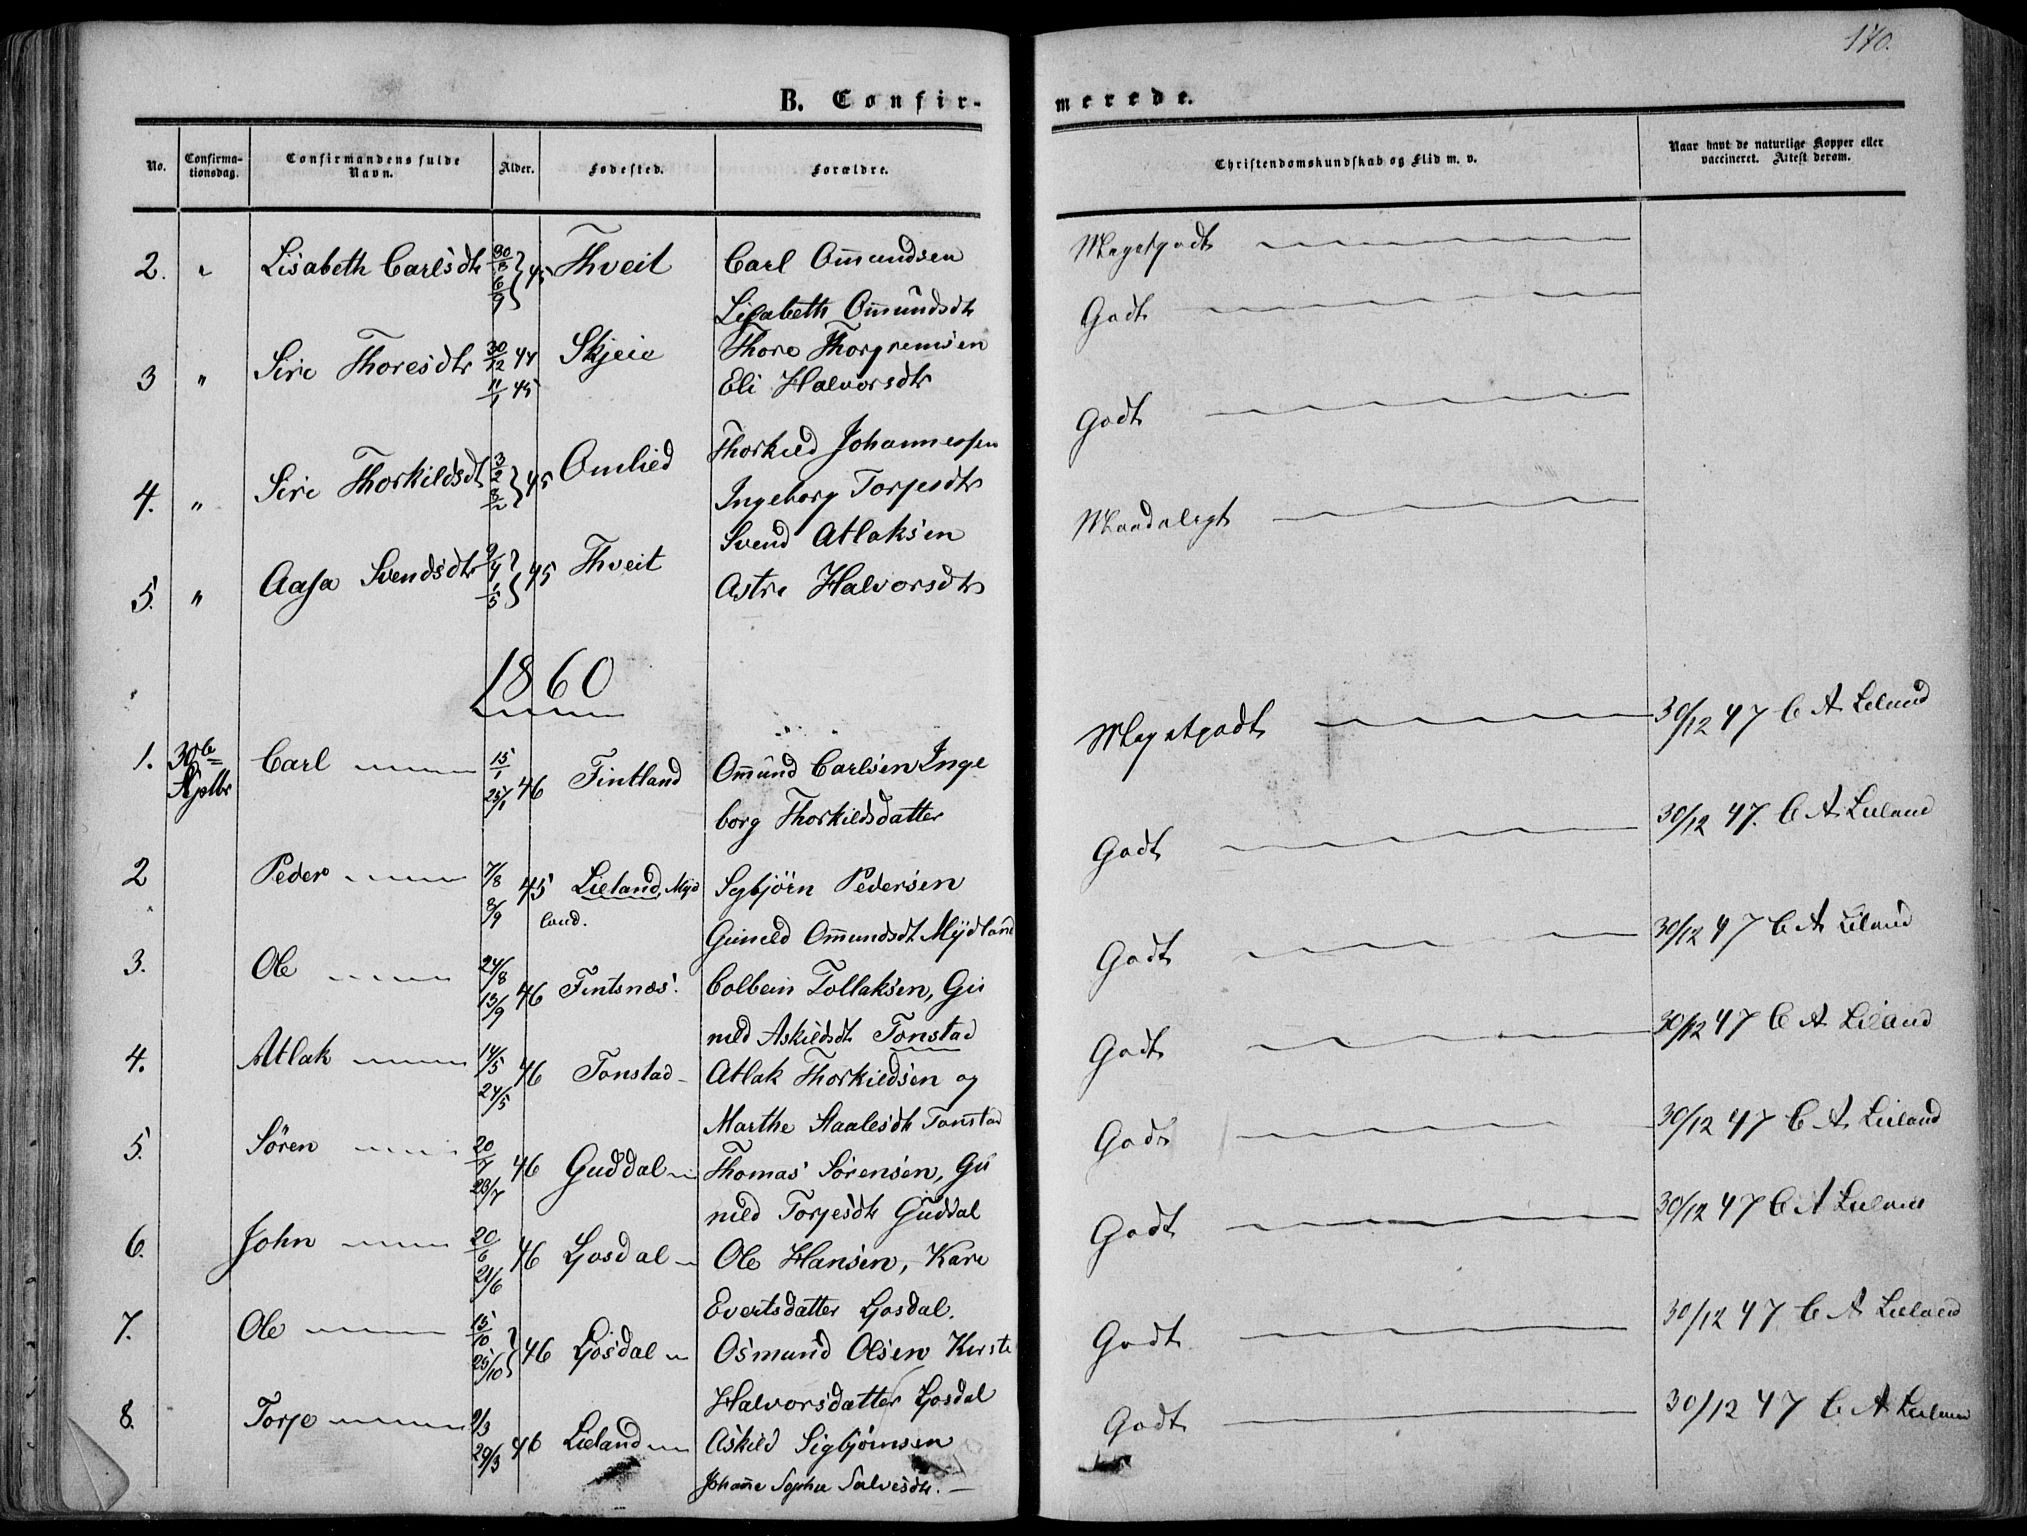 170.
B. Confir-
merede.
No.
Confirma-
tionsdag.
Confirmandens fulde
Navn.
Alder.
Fødested.
Forældre.
Christendomskundskab og Flid m. v.
Naar havt de naturlige Kopper eller
vaccineret. Attest derom.
2. " Lisabeth Carlsdtr 30/8 6/9 } 45 Thveit Carl Omundsen
Lisabeth Omundsdtr
Meget godt
3 " Siri Thoresdtr 30/12 44 Skjeie Thore Thorgremsen
11/1 45 Eli Halvorsdtr
Godt
4. " Siri Thorkildsdt 3/2 } 45 Omlied Thorkild Johannessen
Ingeborg Torjesdtr
Godt
5. " Aasa Svendsdtr 9/4 1/5 } 45 Thveit Svend Atlaksen
Astri Halvorsdtr
Maadelegt
1860
1. 30te Carl 15/1 46 Fintland Omund Carlsen Inge
25/1
borg Thorkildsdatter
Meget godt 30/12 47 C A Lieland
2 Peder 7/8 45 Lieland, Myd Sigbjörn Pedersen
8/9 land. Guneld Omundsdt Mydland
Godt 30/12 47. C A Lieland
3. Ole 24/8 46 Fintsnæs. Colbein Tollaksen, Gu
13/9 neld Askildsdt Tonstad
Godt 30/12 47 C A Lieland
4. Atlak 14/5 46 Tonstad Atlak Thorkildsen og
24/5 Marthe Staalesdt Tonstad
Godt 30/12 47 C A Lieland
5. Sören 20/7 46 Guddal Thomas Sörensen, Gu
23/7 neld Torjesdtr Guddal
Godt 30/12 47 C A Lieland
6. John 20/6 46 Josdal Ole Hansen, Kari
21/6 Evertsdatter Josdal.
Godt 30/12 47 C A Lieland
7. Ole 15/10 25/10 } 46 Josdal Osmund Olsen Kirsti
Halvorsdatter Josdal
Godt 30/12 47 C A Lieland
8. Torje 2/3 46 Lieland Askild Sigbjörnsen
29/3 Johanne Sophie Salvesdtr.
Godt 30/12 47 C A Lieland